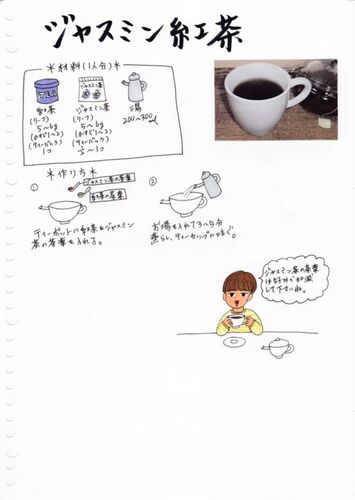 ジャスミン紅茶
＊材料(1人分)＊
TEA
紅茶
(リーフ)
5〜6g
(さじ1〜2)
(ティーバッグ)
1つ
ジャスミン茶
(リーフ)
5〜6g
(さじ1〜2)
(ティーバッグ)
1つ
湯
200〜300ml
＊作り方＊
①
ジャスミン茶の茶葉
紅茶の茶葉
ティーポットに紅茶とジャスミン
茶の茶葉を入れる。
②
お湯を入れて3〜5分
蒸らし、ティーカップに注ぐ。
ジャスミン茶の茶葉
は好みで加減
して下さいね。